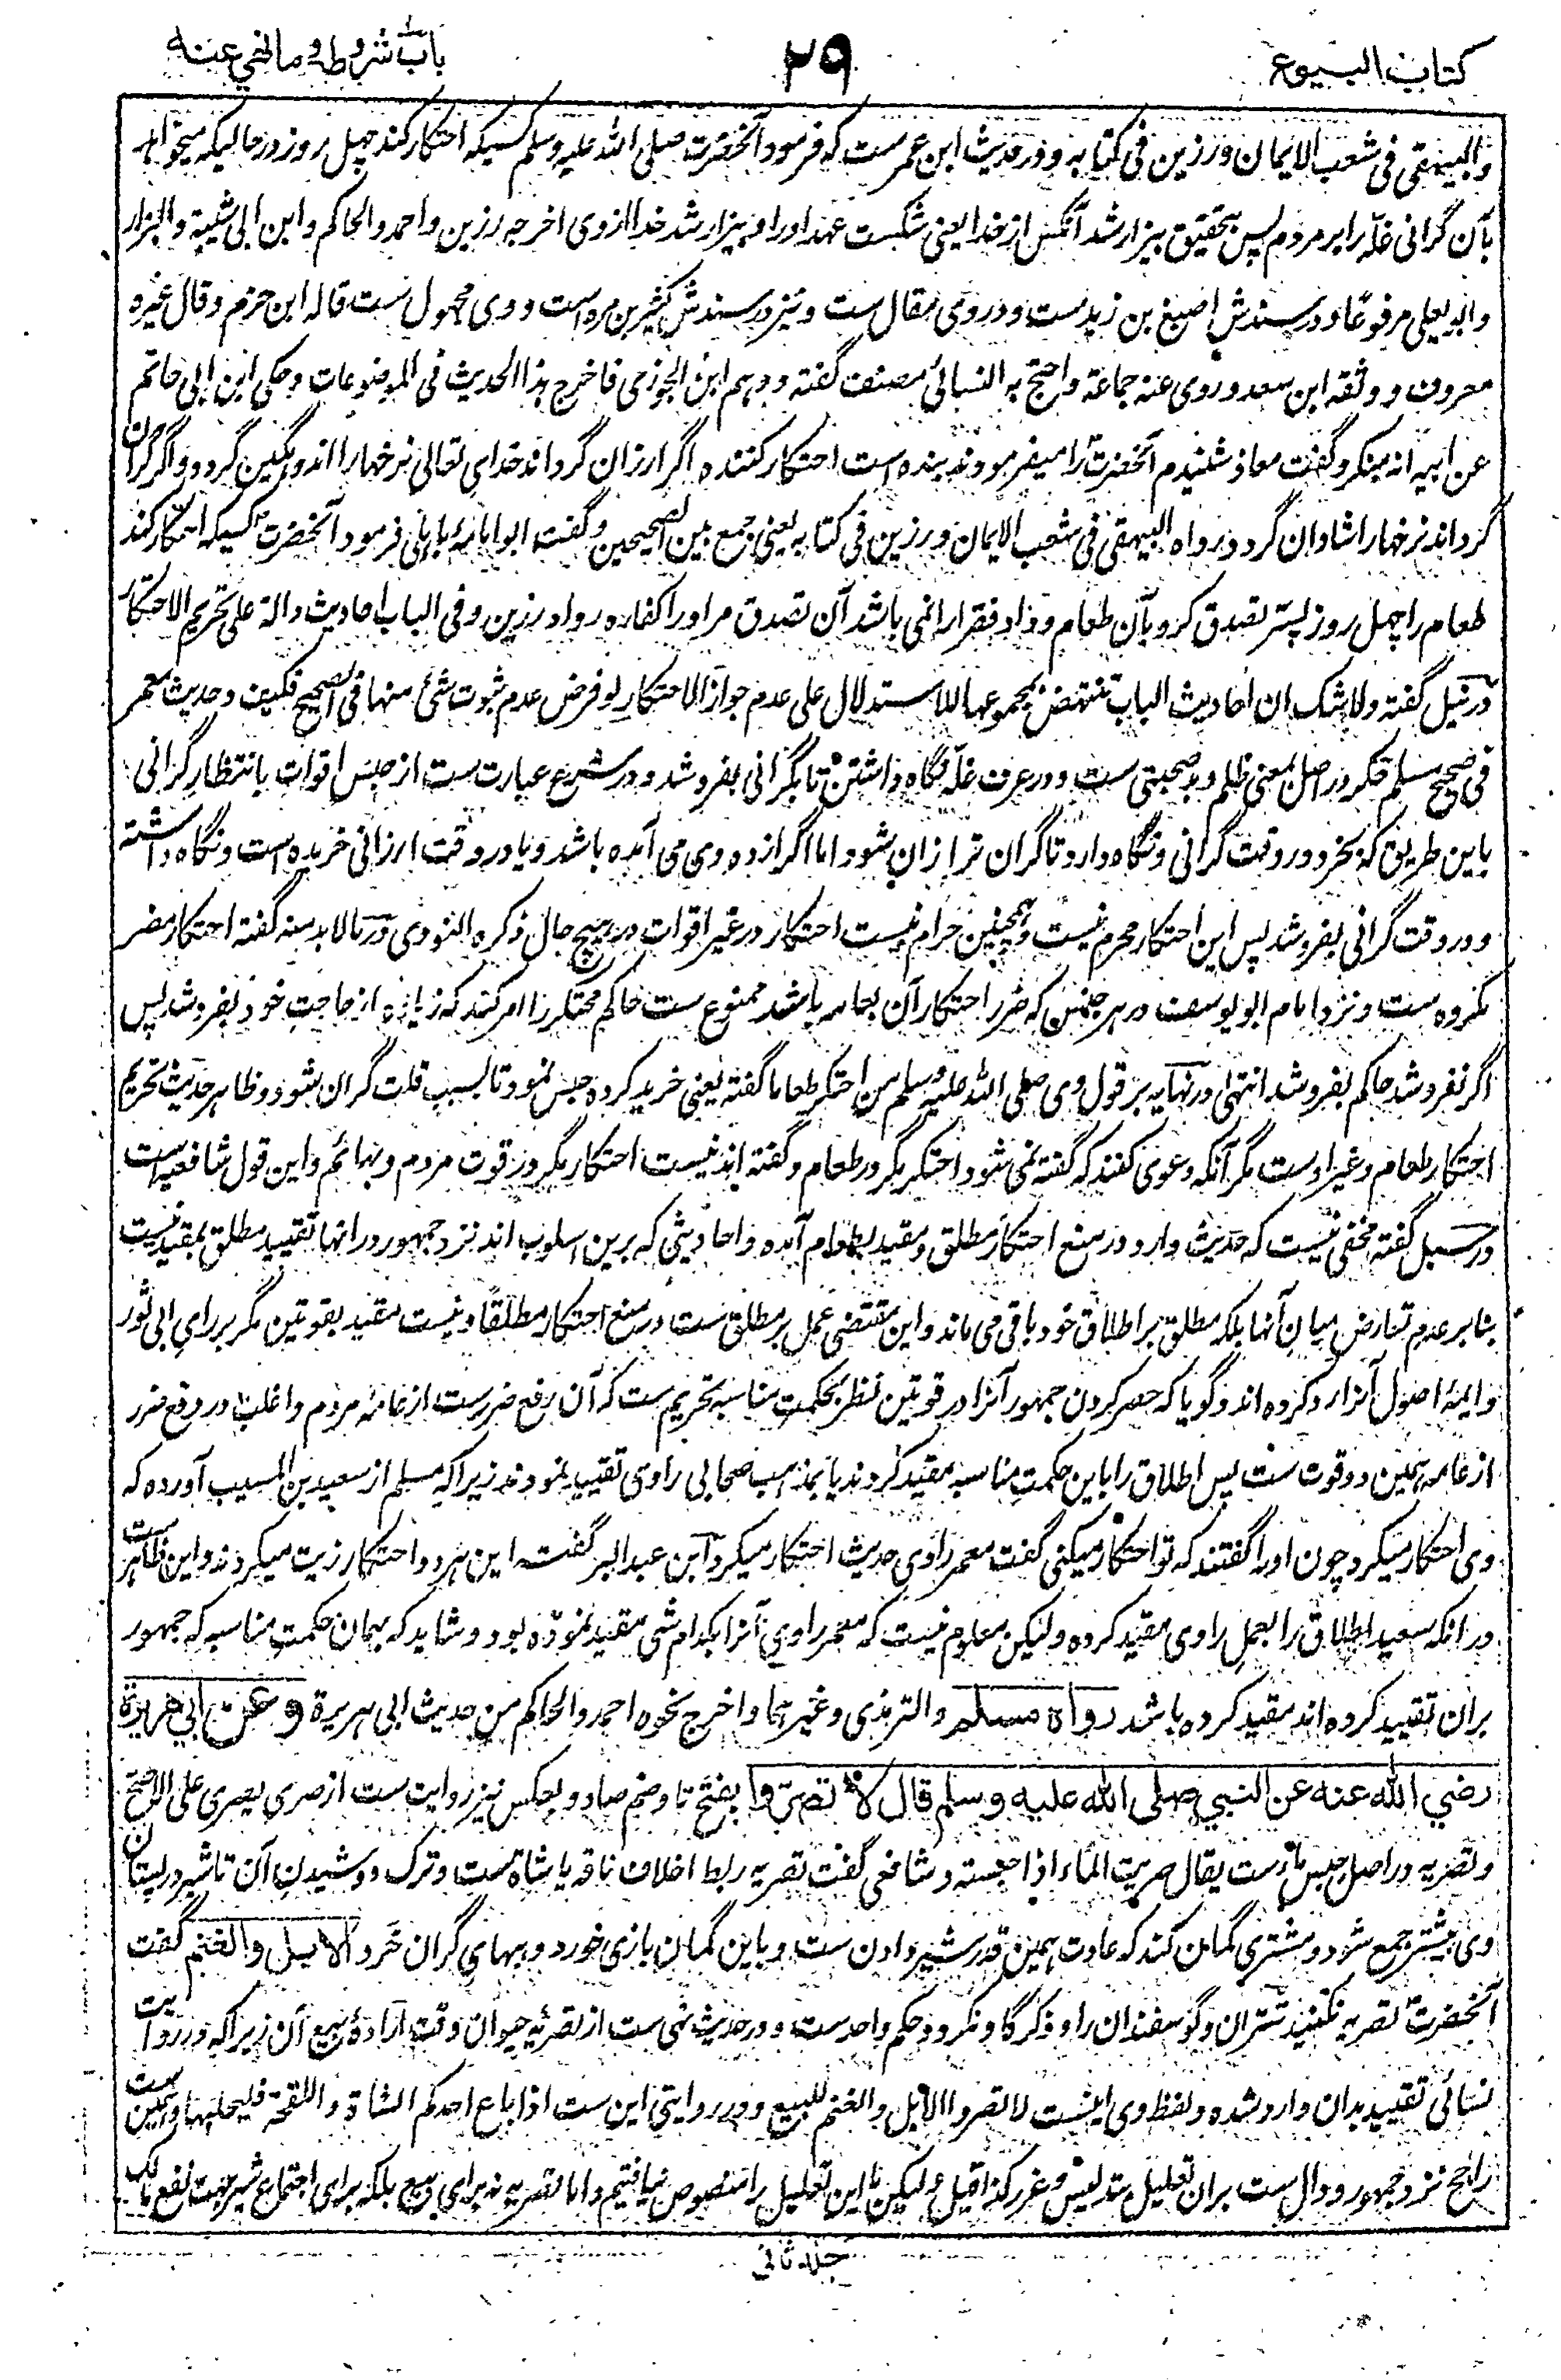 کتاب البیوع
۲۹
باب شروطه وما نهی عنه
والبیهقی فی شعب الایمان ورزین فی کتابه ودر حدیث ابن عمرست که فرمود آنحضرت صلی الله علیه وسلم کسیکه احتکار کند چهل روز در حالیکه میخواهد
بآن گرانی غلّه را بر مردم پس بتحقیق بیزار شد آنکس از خدا یعنی شکست عهد او را و بیزار شد خدا از وی اخرجه رزین واحمد والحاکم وابن ابی شیبة والبزار
وابو یعلی مرفوعًا ودر سندش اصبغ بن زیدست ودر وی مقال ست ونیز در سندش کثیر بن مره است و وی مجهول ست قاله ابن حزم وقال غیره
معروف ووثقه ابن سعد وروی عنه جماعة واحتج به النسائی مصنف گفته ووهم ابن الجوزی فاخرج هذا الحدیث فی الموضوعات وحکی ابن ابی حاتم
عن ابیه انه منکر وگفت معاذ شنیدم آنحضرتؐ را میفرمودند بنده است احتکار کننده اگر ارزان گرداند خدای تعالی نرخها را اندوهگین گردد واگر گران
گرداند نرخها را شادان گردد رواه البیهقی فی شعب الایمان ورزین فی کتابه یعنی جمع بین الصحیحین وگفت ابو امامه باهلی فرمود آنحضرتؐ کسیکه احتکار کند
طعام را چهل روز پستر تصدق کرد بآن طعام وداد فقرا را نمی باشد آن تصدق مر او را کفاره رواه رزین وفی الباب احادیث دالة علی تحریم الاحتکار
در نیل گفته ولا شک ان احادیث الباب تنتهض بمجموعها للاستدلال علی عدم جواز الاحتکار لو فرض عدم ثبوت شئ منها فی الصحیح فکیف وحدیث معمر
فی صحیح مسلم حکر در اصل بمعنی ظلم وبد صحبتی ست ودر عرف غلّه نگاه داشتن تا بگرانی بفروشد ودر شرع عبارت ست از حبس اقوات بانتظار گرانی
باین طریق که بخرد در وقت گرانی ونگاه دارد تا گران تر ازان بشود اما اگر از ده وی می آمده باشد ویا در وقت ارزانی خریده است ونگاه داشته
و در وقت گرانی بفروشد پس این احتکار محرم نیست وهمچنین حرام نیست احتکار در غیر اقوات در هیچ حال ذکره النووی در مالابد منه گفته احتکار مضر
مکروه ست ونزد امام ابو یوسف در هر جنس که ضرر احتکار آن بعامه باشد ممنوع ست حاکم محتکر را امر کند که زیاده از حاجت خود بفروشد پس
اگر نفروشد حاکم بفروشد انتهی در نهایه بر قول وی صلی الله علیه وسلم من احتکر طعاما گفته یعنی خرید کرده حبس نمود تا بسبب قلت گران بشود وظاهر حدیث تحریم
احتکار طعام وغیر اوست مگر آنکه دعوی کنند که گفته نمی شود احتکر مگر در طعام وگفته اند نیست احتکار مگر در قوت مردم وبهائم واین قول شافعیه است
در سبل گفته مخفی نیست که حدیث وارد در منع احتکار مطلق ومقید بطعام آمده واحادیثی که برین اسلوب اند نزد جمهور در انها تقیید مطلق بمقید نیست
بنابر عدم تعارض میان آنها بلکه مطلق بر اطلاق خود باقی می ماند واین مقتضی عمل بر مطلق ست در منع احتکار مطلقًا ونیست مقید بقوتین مگر بر رای ابی ثور
وایمهٔ اصول آنرا رد کرده اند وگویا که حصر کردن جمهور آنرا در قوتین نظر بحکمت مناسبه تحریم ست که آن رفع ضررست از عامهٔ مردم واغلب در دفع ضرر
از عامه همین دو قوت ست پس اطلاق را باین حکمت مناسبه مقید کردند یا بمذهب صحابی راوی تقیید نمودند زیرا که مسلم از سعید بن المسیب آورده که
وی احتکار میکرد چون او را گفتند که تو احتکار میکنی گفت معمر راوی حدیث احتکار میکرد ابن عبد البر گفته این هر دو احتکار زیت میکردند واین ظاهر ست
در انکه سعید اطلاق را بعمل راوی مقید کرده ولیکن معلوم نیست که معمر راوی آنرا بکدام شی مقید نموده بود وشاید که بهمان حکمت مناسبه که جمهور
بران تقیید کرده اند مقید کرده باشد رواه مسلم والترمذی وغیرهما واخرج نحوه احمد والحاکم من حدیث ابی هریرة وعن ابی هریرة
رضی الله عنه عن النبی صلی الله علیه وسلم قال لا تصرّوا بفتح تا وضم صاد وبعکس نیز روایت ست از صری یصری علی الاصح
وتصریه در اصل حبس ماءست یقال صریت الماء اذا حبسته وشافعی گفت تصریه ربط اخلاف ناقه یا شاة ست وترک دوشیدن آن تا شیر در پستان
وی بیشتر جمع شود ومشتری گمان کند که عادت همین قدر شیر دادن ست وباین گمان بازی خورد وببهای گران خَرد الابل والغنم گفت
آنحضرتؐ تصریه نکنید شتران وگوسفندان را وذکر گاو نکرد وحکم واحدست ودر حدیث نهی ست از تصریهٔ حیوان وقت ارادهٔ بیع آن زیرا که در روایت
نسائی تقیید بدان وارد شده ولفظ وی اینست لا تصروا الابل والغنم للبیع ودر روایتی این ست اذا باع احدکم الشاة واللقحة فلیحلبها وهمین ست
راجح نزد جمهور ودال ست بران تعلیل بتدلیس وغرر کذا قیل ولیکن ما این تعلیل را منصوص نیافتیم واما تصریه نه برای بیع بلکه برای اجتماع شیر بهت نفع مالک
جلد ثانی